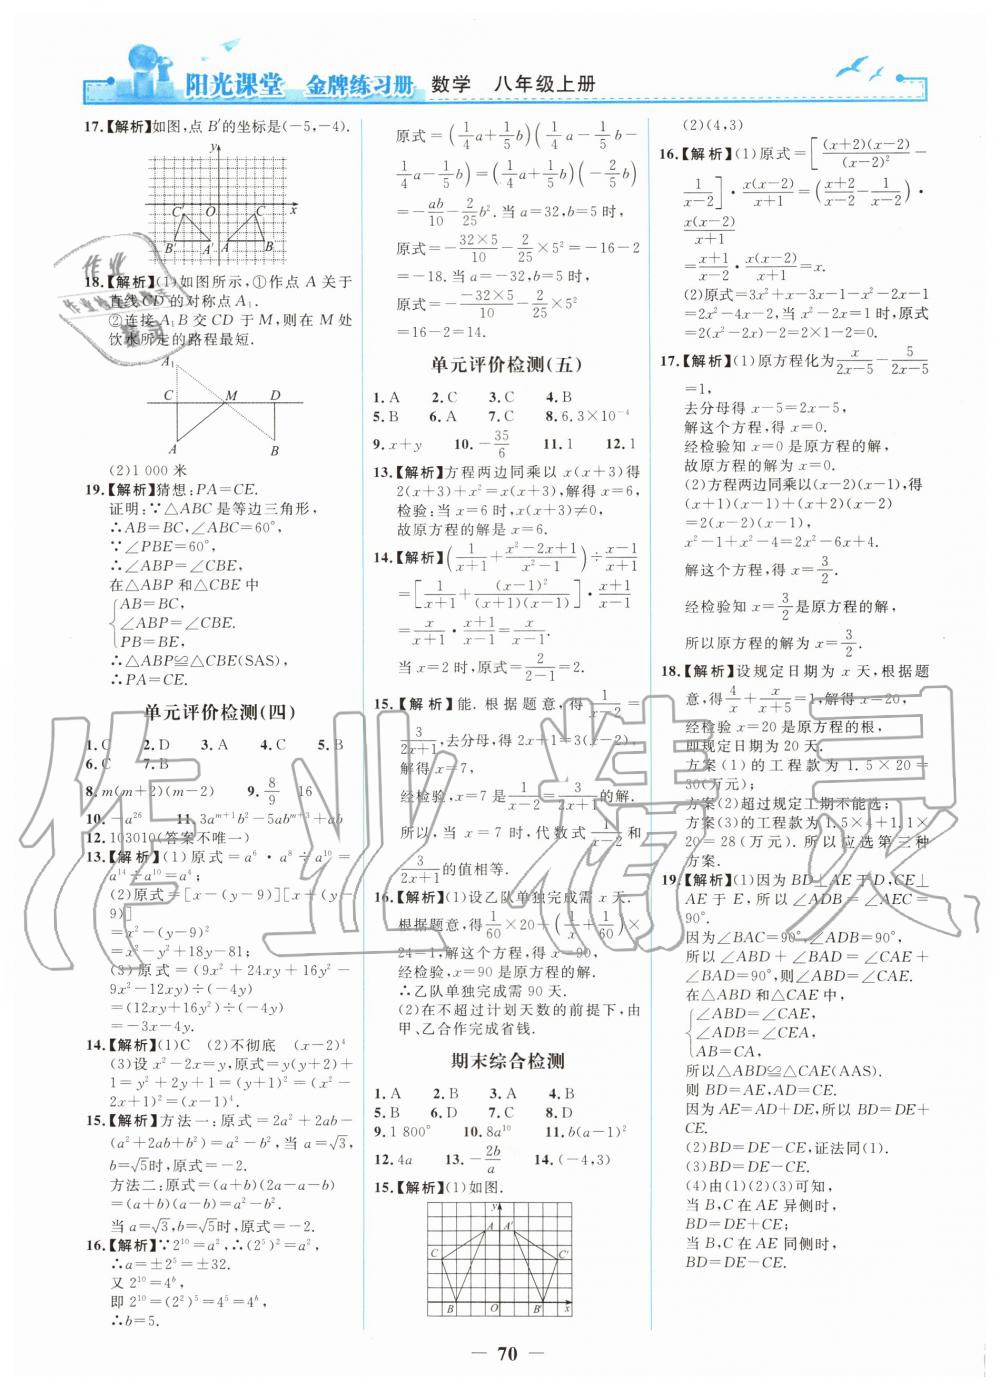 阳光课堂 金牌练习册 数学 八年级上册
17.【解析】如图,点 B′的坐标是(-5,-4).
y
C′ O C x
B′ A′ A B
18.【解析】(1)如图所示,①作点 A 关于
直线CD 的对称点 A₁.
②连接 A₁B 交 CD 于 M,则在 M 处
饮水所走的路程最短.
A₁
C M D
A B
(2)1 000 米
19.【解析】猜想:PA=CE.
证明:∵△ABC 是等边三角形,
∴AB=BC,∠ABC=60°,
∵∠PBE=60°,
∴∠ABP=∠CBE,
在△ABP 和△CBE 中
AB=BC,
∠ABP=∠CBE.
PB=BE,
∴△ABP≌△CBE(SAS),
∴PA=CE.
单元评价检测(四)
1.C 2.D 3.A 4.C 5.B
6.C 7.B
8.m(m+2)(m-2) 9.8/9 16
10.-a²⁶ 11.3aᵐ⁺¹b²-5abᵐ⁺³+ab
12.103010(答案不唯一)
13.【解析】(1)原式=a⁶·a⁸÷a¹⁰=
a¹⁴÷a¹⁰=a⁴;
(2)原式=[x-(y-9)][x+(y-
9)]
=x²-(y-9)²
=x²-y²+18y-81;
(3)原式=(9x²+24xy+16y²-
9x²-12xy)÷(-4y)
=(12xy+16y²)÷(-4y)
=-3x-4y.
14.【解析】(1)C (2)不彻底 (x-2)⁴
(3)设 x²-2x=y,原式=y(y+2)+
1=y²+2y+1=(y+1)²=(x²-
2x+1)²=(x-1)⁴.
15.【解析】方法一:原式=2a²+2ab-
(a²+2ab+b²)=a²-b²,当 a=√3,
b=√5时,原式=-2.
方法二:原式=(a+b)(2a-a-b)
=(a+b)(a-b)=a²-b².
当 a=√3,b=√5时,原式=-2.
16.【解析】∵2¹⁰=a²,∴(2⁵)²=a²,
∴a=±2⁵=±32.
又 2¹⁰=4ᵇ,
即 2¹⁰=(2²)⁵=4⁵=4ᵇ,
∴b=5.
原式=(1/4a+1/5b)(1/4a-1/5b-
1/4a-1/5b)=(1/4a+1/5b)(-2/5b)
=-ab/10-2/25b².当 a=32,b=5 时,
原式=-32×5/10-2/25×5²=-16-2=
-18.当 a=-32,b=5 时,
原式=--32×5/10-2/25×5²
=16-2=14.
单元评价检测(五)
1.A 2.C 3.C 4.B
5.B 6.A 7.C 8.6.3×10⁻⁴
9.x+y 10.-35/6 11.1 12.1
13.【解析】方程两边同乘以 x(x+3)得
2(x+3)+x²=x(x+3),解得 x=6,
检验:当 x=6 时,x(x+3)≠0,
故原方程的解是 x=6.
14.【解析】(1/(x+1)+(x²-2x+1)/(x²-1))÷(x-1)/(x+1)
=[1/(x+1)+(x-1)²/((x+1)(x-1))]·(x+1)/(x-1)
=x/(x+1)·(x+1)/(x-1)=x/(x-1).
当 x=2 时,原式=2/(2-1)=2.
15.【解析】能.根据题意,得1/(x-2)=
3/(2x+1),去分母,得 2x+1=3(x-2),
解得 x=7,
经检验,x=7 是1/(x-2)=3/(2x+1)的解.
所以,当 x=7 时,代数式1/(x-2)和
3/(2x+1)的值相等.
16.【解析】(1)设乙队单独完成需 x 天.
根据题意,得1/60×20+(1/x+1/60)×
24=1,解这个方程,得 x=90,
经检验,x=90 是原方程的解.
∴乙队单独完成需 90 天.
(2)在不超过计划天数的前提下,由
甲、乙合作完成省钱.
期末综合检测
1.A 2.B 3.A 4.B
5.B 6.D 7.C 8.D
9.1 800° 10.8a¹⁰ 11.b(a-1)²
12.4a 13.-2b/a 14.(-4,3)
15.【解析】(1)如图.
y
A A′
C C′
B O B′ x
(2)(4,3)
16.【解析】(1)原式=[(x+2)(x-2)/(x-2)²-
1/(x-2)]·x(x-2)/(x+1)=((x+2)/(x-2)-1/(x-2))·
x(x-2)/(x+1)
=(x+1)/(x-2)·x(x-2)/(x+1)=x.
(2)原式=3x²+x-3x-1-x²-2x-1
=2x²-4x-2,当 x²-2x=1时,原式
=2(x²-2x)-2=2×1-2=0.
17.【解析】(1)原方程化为x/(2x-5)-5/(2x-5)
=1,
去分母得 x-5=2x-5,
解这个方程,得 x=0.
经检验知 x=0 是原方程的解,
故原方程的解为 x=0.
(2)方程两边同乘以(x-2)(x-1),得
(x+1)(x-1)+(x-2)(x-1)
=2(x-2)(x-1),
x²-1+x²-3x+2=2x²-6x+4.
解这个方程,得 x=3/2.
经检验知 x=3/2是原方程的解,
所以原方程的解为 x=3/2.
18.【解析】设规定日期为 x 天,根据题
意,得4/x+x/(x+5)=1,解得 x=20,
经检验知 x=20 是原方程的根,
即规定日期为 20 天.
方案(1)的工程款为 1.5×20=
30(万元);
方案(2)超过规定工期不能选;
方案(3)的工程款为 1.5×4+1.1×
20=28(万元).所以应选第三种
方案.
19.【解析】(1)因为 BD⊥AE 于 D,CE⊥
AE 于 E,所以∠ADB=∠AEC=
90°.
因为∠BAC=90°,∠ADB=90°,
所以∠ABD+∠BAD=∠CAE+
∠BAD=90°,则∠ABD=∠CAE.
在△ABD 和△CAE 中,
∠ABD=∠CAE,
∠ADB=∠CEA,
AB=CA,
所以△ABD≌△CAE(AAS).
则 BD=AE,AD=CE.
因为 AE=AD+DE,所以 BD=DE+
CE.
(2)BD=DE-CE,证法同(1).
(3)BD=DE-CE.
(4)由(1)(2)(3)可知,
当 B,C 在 AE 异侧时,
BD=DE+CE;
当 B,C 在 AE 同侧时,
BD=DE-CE.
— 70 —
作业精灵